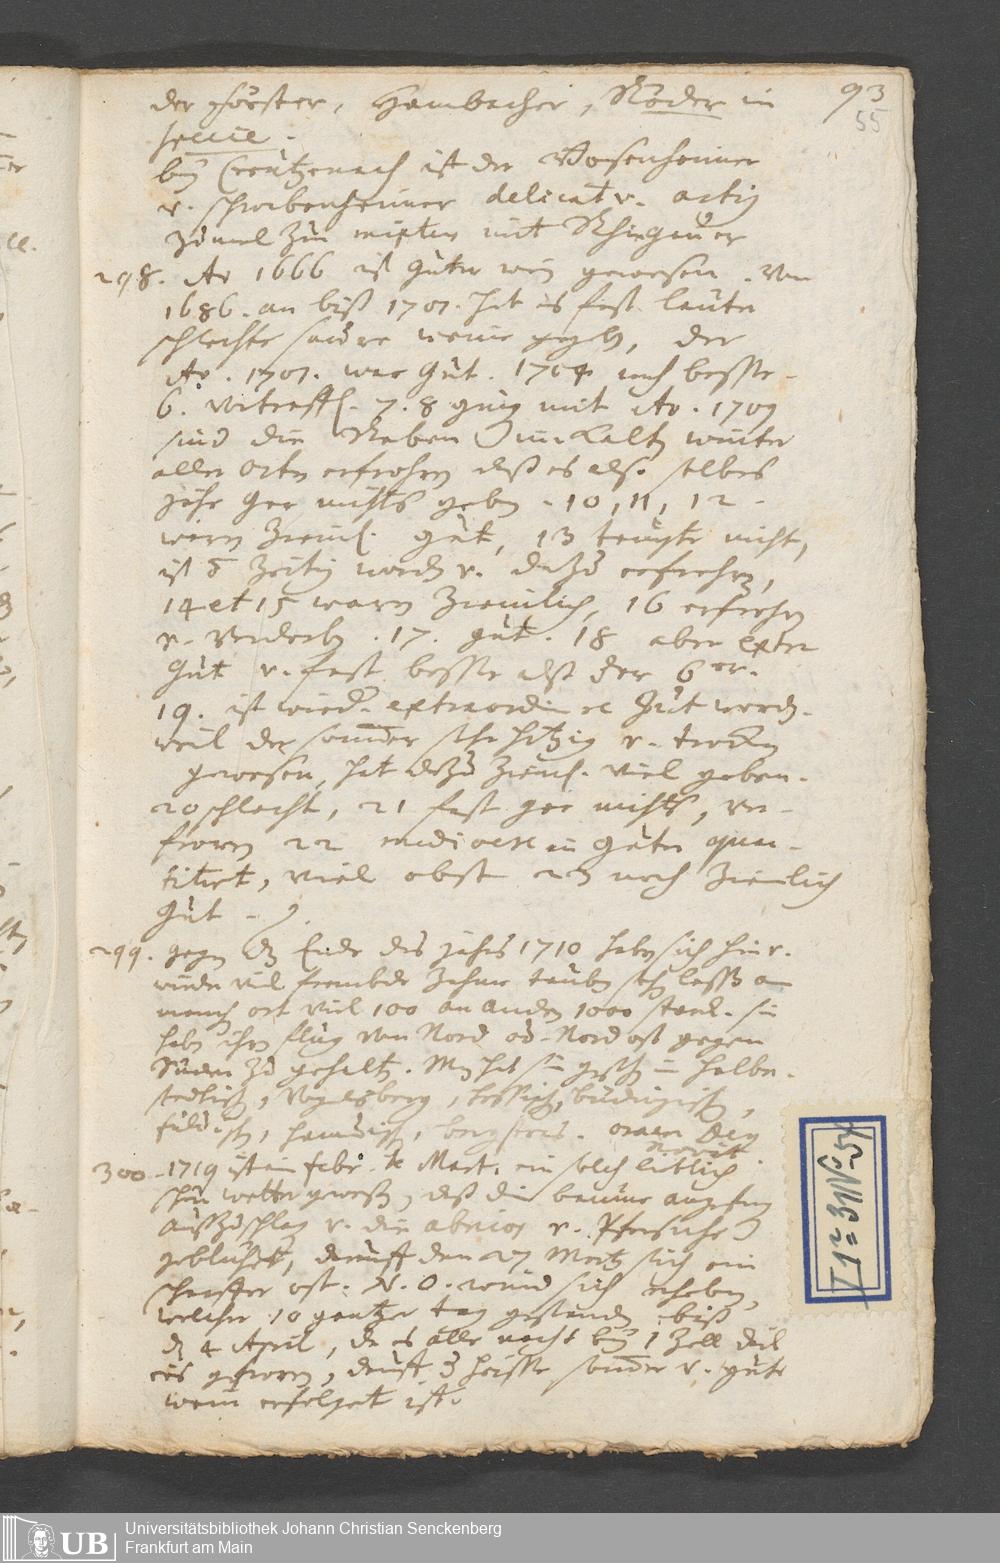 der Förster, Hambacher, Röder in
specie.
93
55
bey Creützenach ist der Bosenheimer
v. schwabenheimer delicat v. artig
zumal zum mixten mit Rhingauer
298. Ao 1666 ist guter wein gewesen. Von
1686. an biß 1701. hat es fast lauter
schlechte saure weine geg., der
Ao. 1701. war gut. 1704 noch besser
6. vortreffl. 7. 8 ging mit Ao. 1709
sind die Reben im kalten winter
aller orten erfrohren daß es also selbes
jahr gar nichts geben. 10, 11, 12
waren zieml. gut, 13 taugte nicht,
ist zeitig worden v. dazu erfrohren,
14 et 15 waren ziemlich, 16 erfrohren
v. verdorben. 17. gut. 18 aber extra
gut v. fast besser alß der 6er.
19. ist wieder extraordin gut worden.
weil der sommer sehr hitzig v. trocken
gewesen, hat dazu zieml. viel geben.
20 schlecht, 21 fast gar nichts, ver-
froren 22 mediocre in guter quan-
titaet, viel obst 23 noch ziemlich
gut
299. gegen das Ende des jahrs 1710 haben sich hin v.
wieder viel frembde tauben sehen lassen an
manch ort viel 100 an andern 1000 starck. sie
haben ihren flug von Nord od. Nordost gegen
Süden zu gehalten. Man hat sie in Halber-
stadtisch, Vogelsberg, Hessisch, büdingisch,
fuldisch, hanauisch, bergstras. omen Deus
novit.
300. 1719 ist im febr. et Mart. ein solch lieblich
schön wetter gewesen, daß die bäume angefangen
außzuschlagen v. die abricos v. Pfersiche
geblühet, drauff den 27 Mertz sich ein
scharffer ost. N. O. wind sich erhoben,
welcher 10 gantzer tag gestanden biß
d. 4 April, da es alle nacht bey 1 Zoll dick
eis gefroren, drauf heisser sommer v. guter
wein erfolget ist.
Universitätsbibliothek Johann Christian Senckenberg
Frankfurt am Main
UB